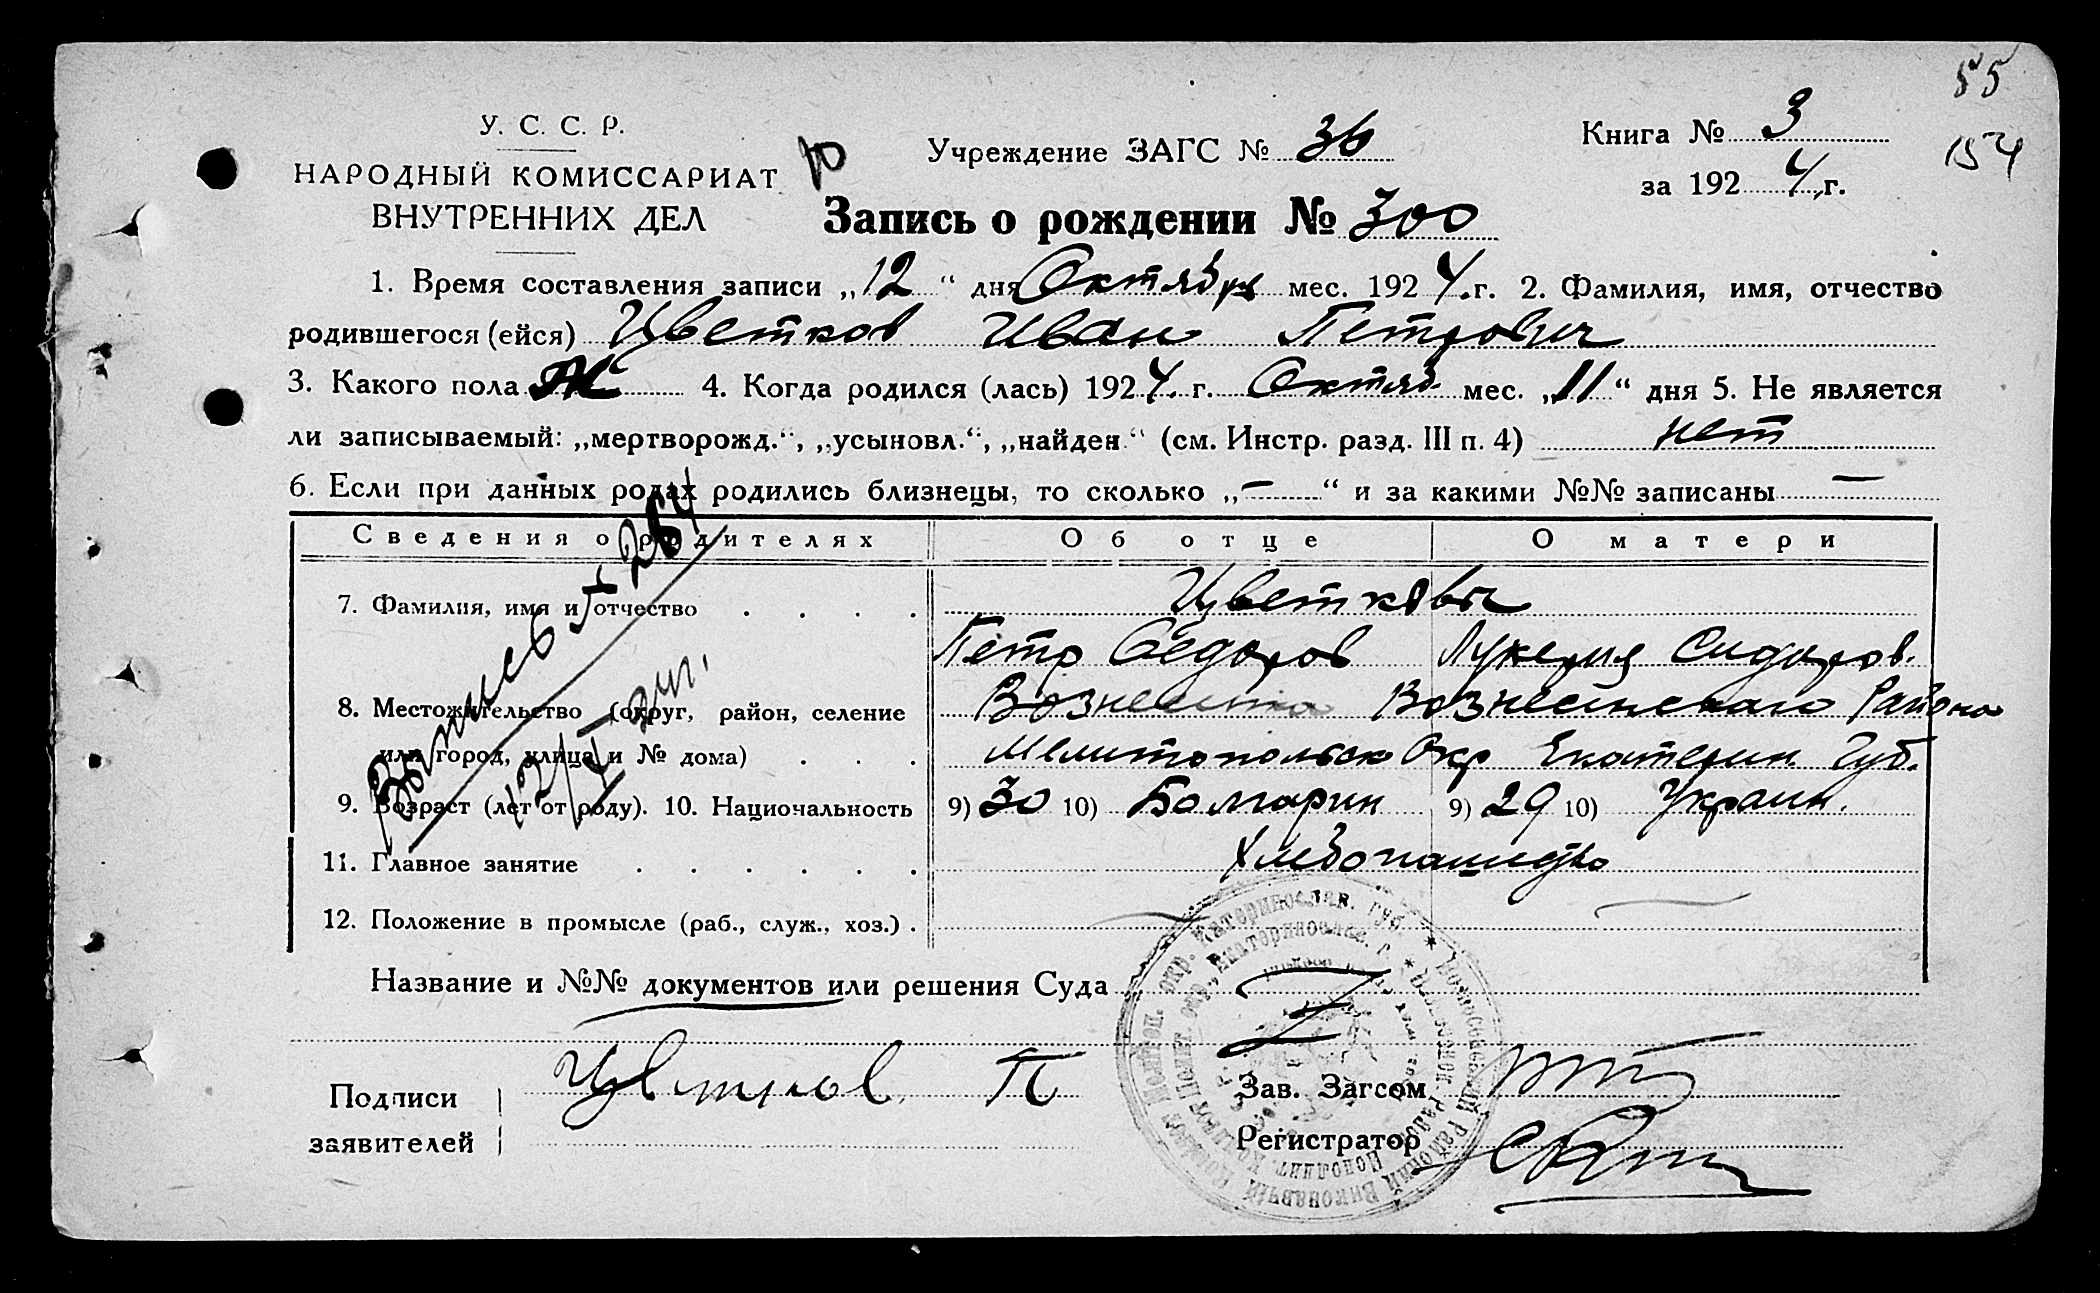 55
154
У. С. С. Р.
НАРОДНЫЙ КОМИССАРИАТ
ВНУТРЕННИХ ДЕЛ
Учреждение ЗАГС № 36
Книга № 3
за 1924 г.
Запись о рождении № 300
1. Время составления записи „12“ дня Октября мес. 1924 г. 2. Фамилия, имя, отчество
родившегося (ейся) Цветков Иван Петрович
3. Какого пола 4. Когда родился (лась) 1924 г. Октяб. мес. „11“ дня 5. Не является
ли записываемый: „мертворожд.“, „усыновл.“, „найден.“ (см. Инстр. разд. III п. 4) нет
6. Если при данных родах родились близнецы, то сколько „—“ и за какими №№ записаны —
Сведения о родителях Об отце О матери
7. Фамилия, имя и отчество . . . . Цветковы
Петр Федоров Лукерия Сидоров.
8. Местожительство (округ, район, селение Вознесенского Района
или город, улица и № дома) . . . Мелитопольск Окр Екатерин. Губ.
9. Возраст (лет от роду). 10. Национальность 9) 30 10) Болгарин 9) 29 10) Украин.
11. Главное занятие . . . . . . Хлебопашество
12. Положение в промысле (раб., служ., хоз.) .
Название и №№ документов или решения Суда
Подписи
заявителей
Цветков П
Зав. Загсом
Регистратор